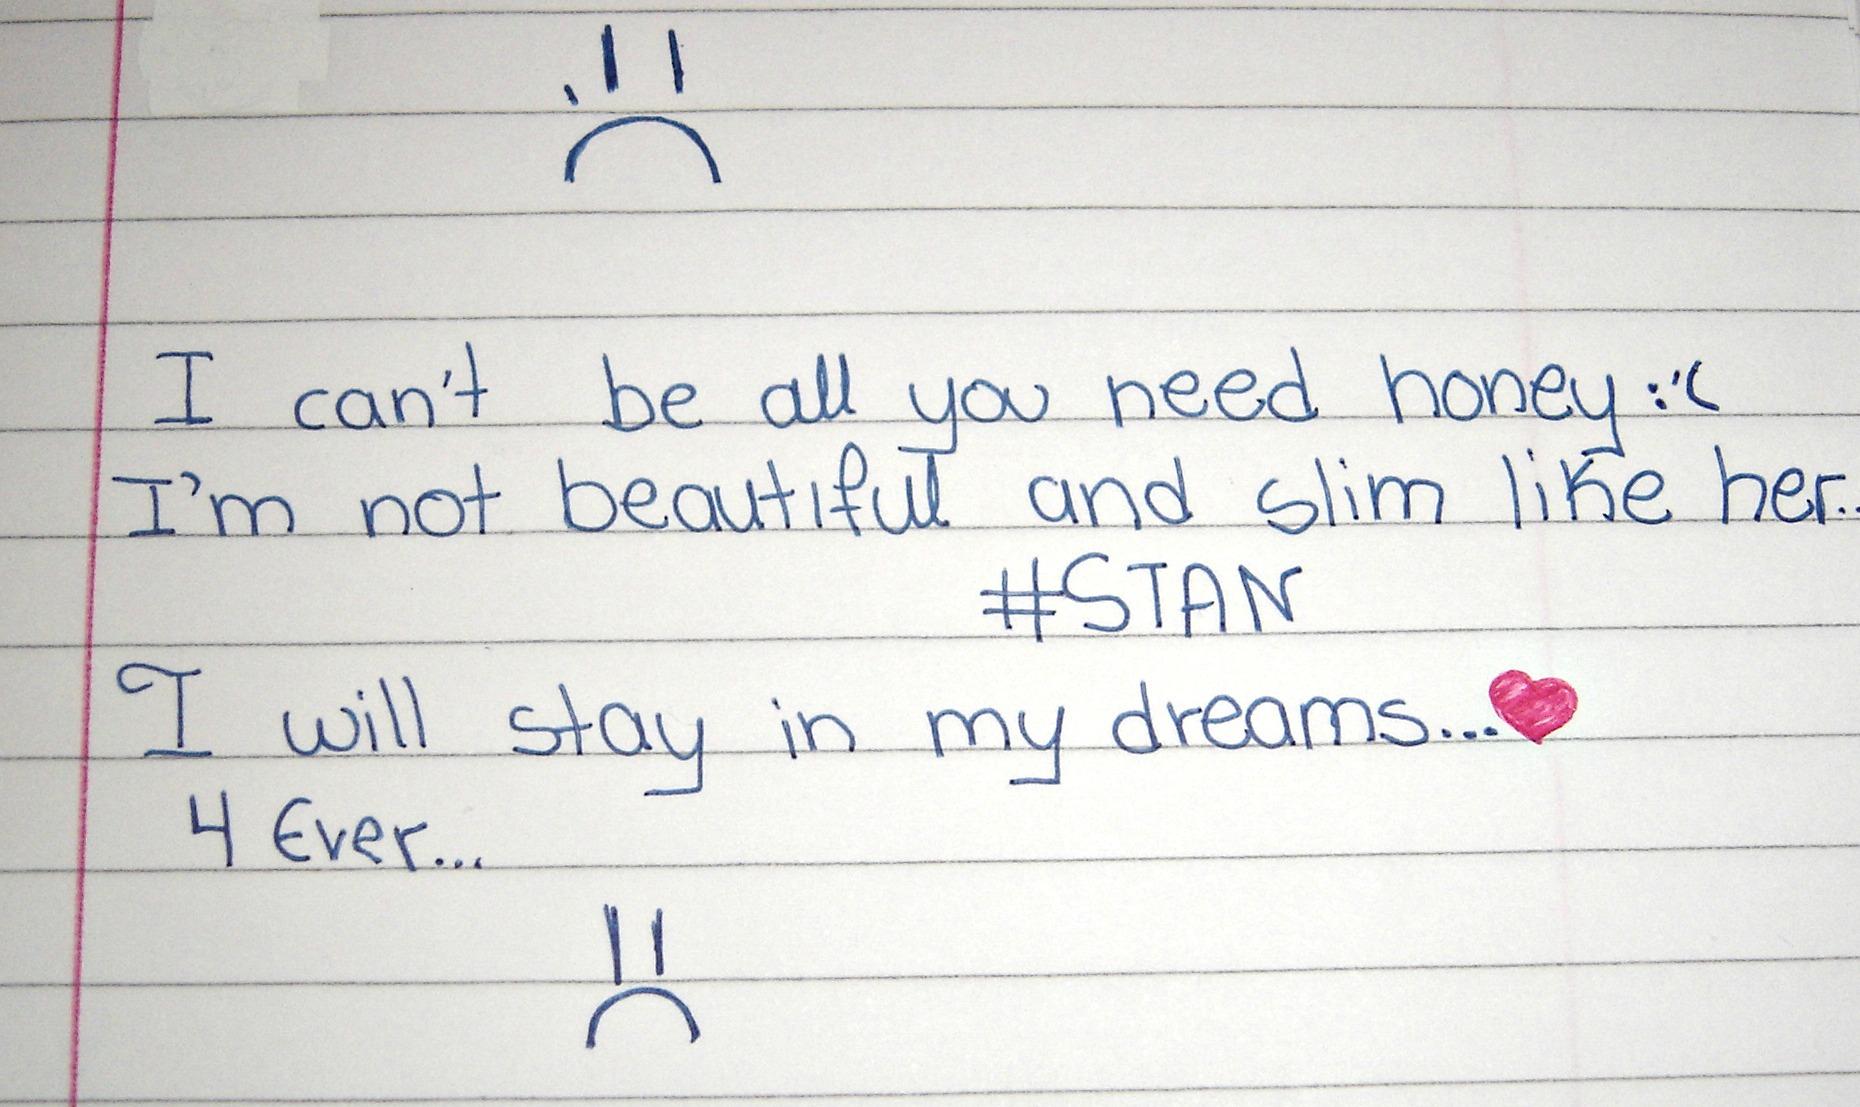 I can't be all you need honey :'(
I'm not beautiful and slim like her..
#STAN
I will stay in my dreams...
4 Ever...